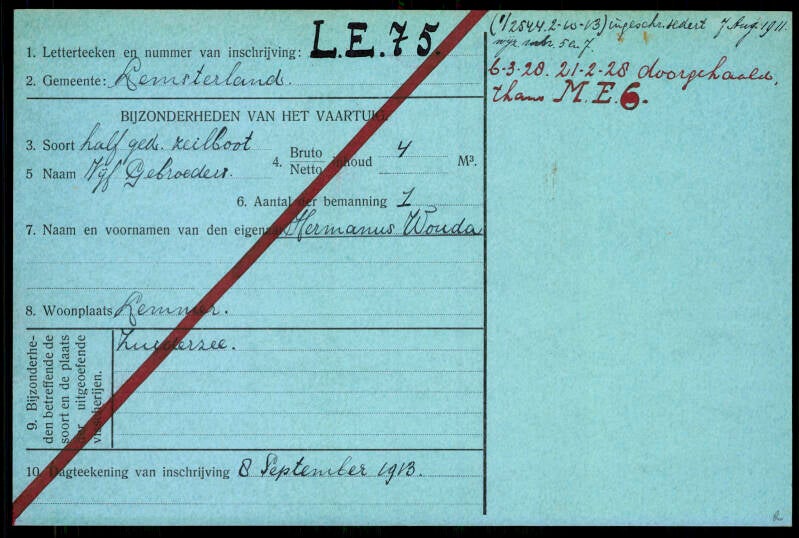 1. Letterteeken en nummer van inschrijving: L.E.75.
2. Gemeente: Lemsterland.
BIJZONDERHEDEN VAN HET VAARTUIG.
3. Soort half ged. zeilboot
4. Bruto Netto inhoud 4 M³.
5 Naam Vijf Gebroeders.
6. Aantal der bemanning 1
7. Naam en voornamen van den eigenaar Hermanus Wouda
8. Woonplaats Lemmer.
9. Bijzonderhe-
den betreffende de
soort en de plaats
der uitgeoefende
visscherijen.
Zuiderzee.
10. Dagteekening van inschrijving 8 September 1913.
(1/2544.2-10-13) ingeschr. sedert 7 Aug. 1911.
wijz. 5 a. 7.
6-3-28. 21-2-28 doorgehaald,
thans M.E.6.